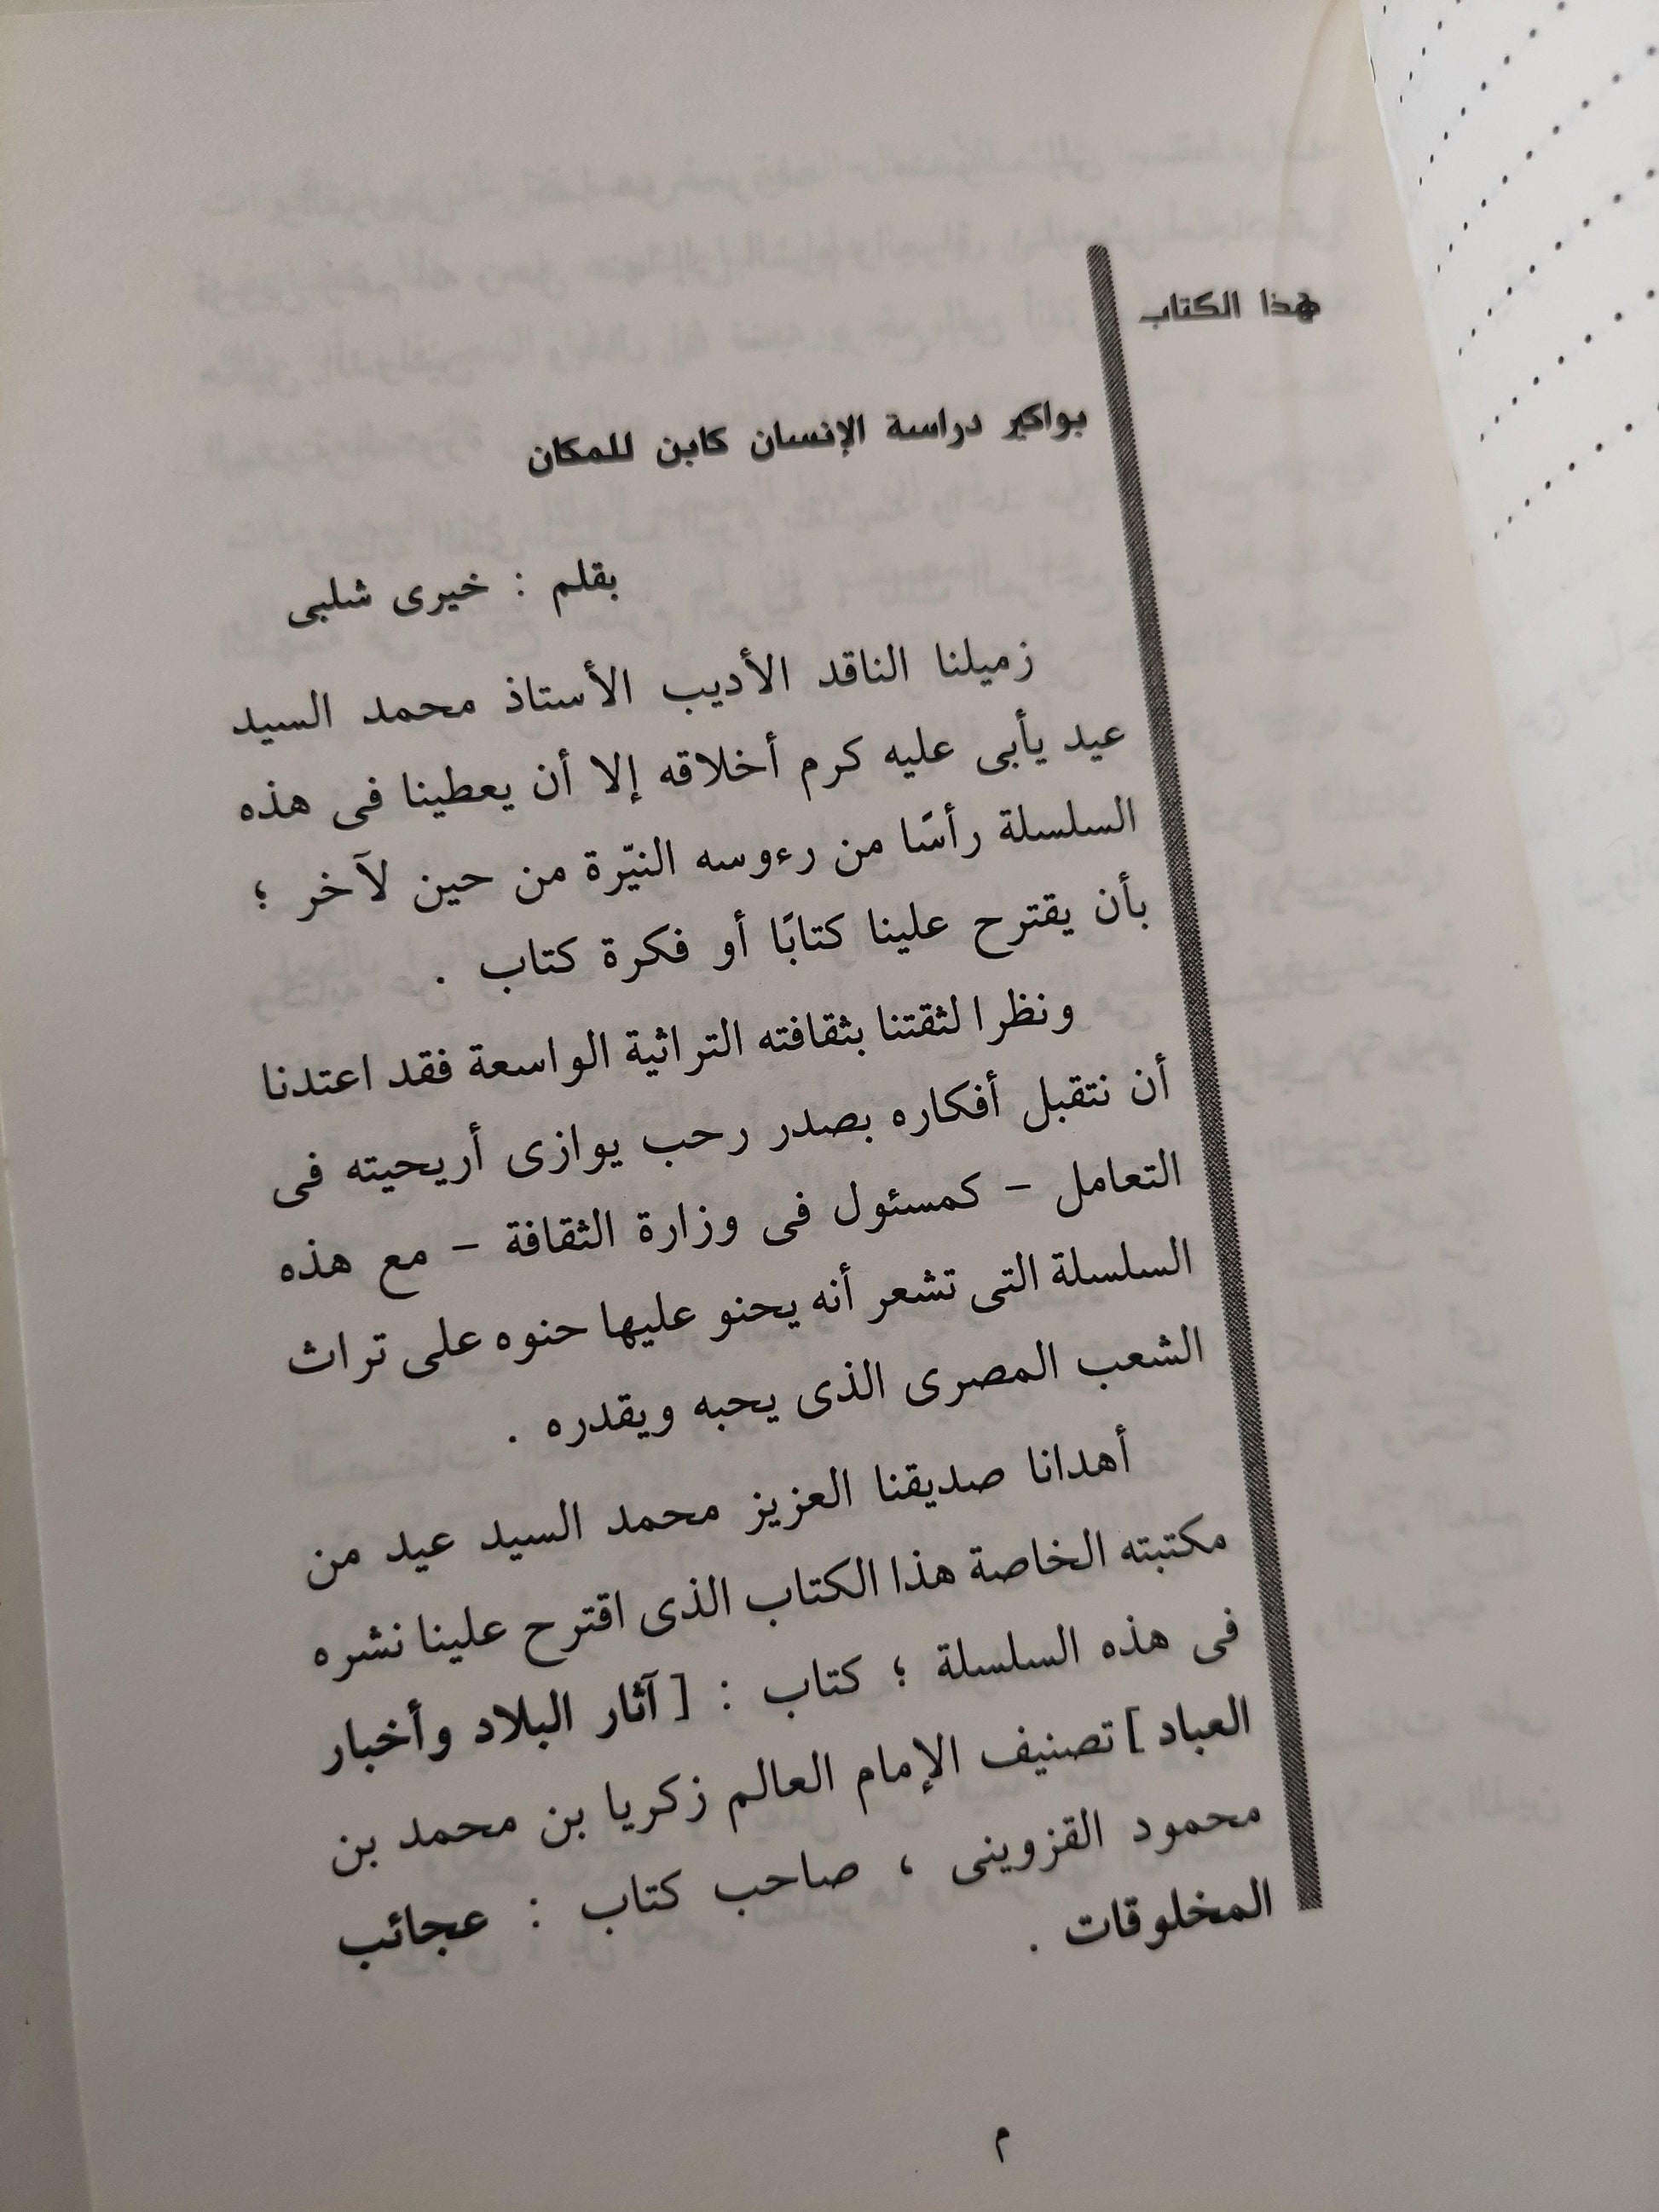 هذا الكتاب
بواكير دراسة الإنسان كابن للمكان
بقلم : خيرى شلبى
زميلنا الناقد الأديب الأستاذ محمد السيد
عيد يأبى عليه كرم أخلاقه إلا أن يعطينا فى هذه
السلسلة رأسًا من رءوسه النيّرة من حين لآخر ؛
بأن يقترح علينا كتابًا أو فكرة كتاب .
ونظرا لثقتنا بثقافته التراثية الواسعة فقد اعتدنا
أن نتقبل أفكاره بصدر رحب يوازى أريحيته فى
التعامل – كمسئول فى وزارة الثقافة – مع هذه
السلسلة التى تشعر أنه يحنو عليها حنوه على تراث
الشعب المصرى الذى يحبه ويقدره .
أهدانا صديقنا العزيز محمد السيد عيد من
مكتبته الخاصة هذا الكتاب الذى اقترح علينا نشره
فى هذه السلسلة ؛ كتاب : [ آثار البلاد وأخبار
العباد ] تصنيف الإمام العالم زكريا بن محمد بن
محمود القزوينى ، صاحب كتاب : عجائب
المخلوقات .
م